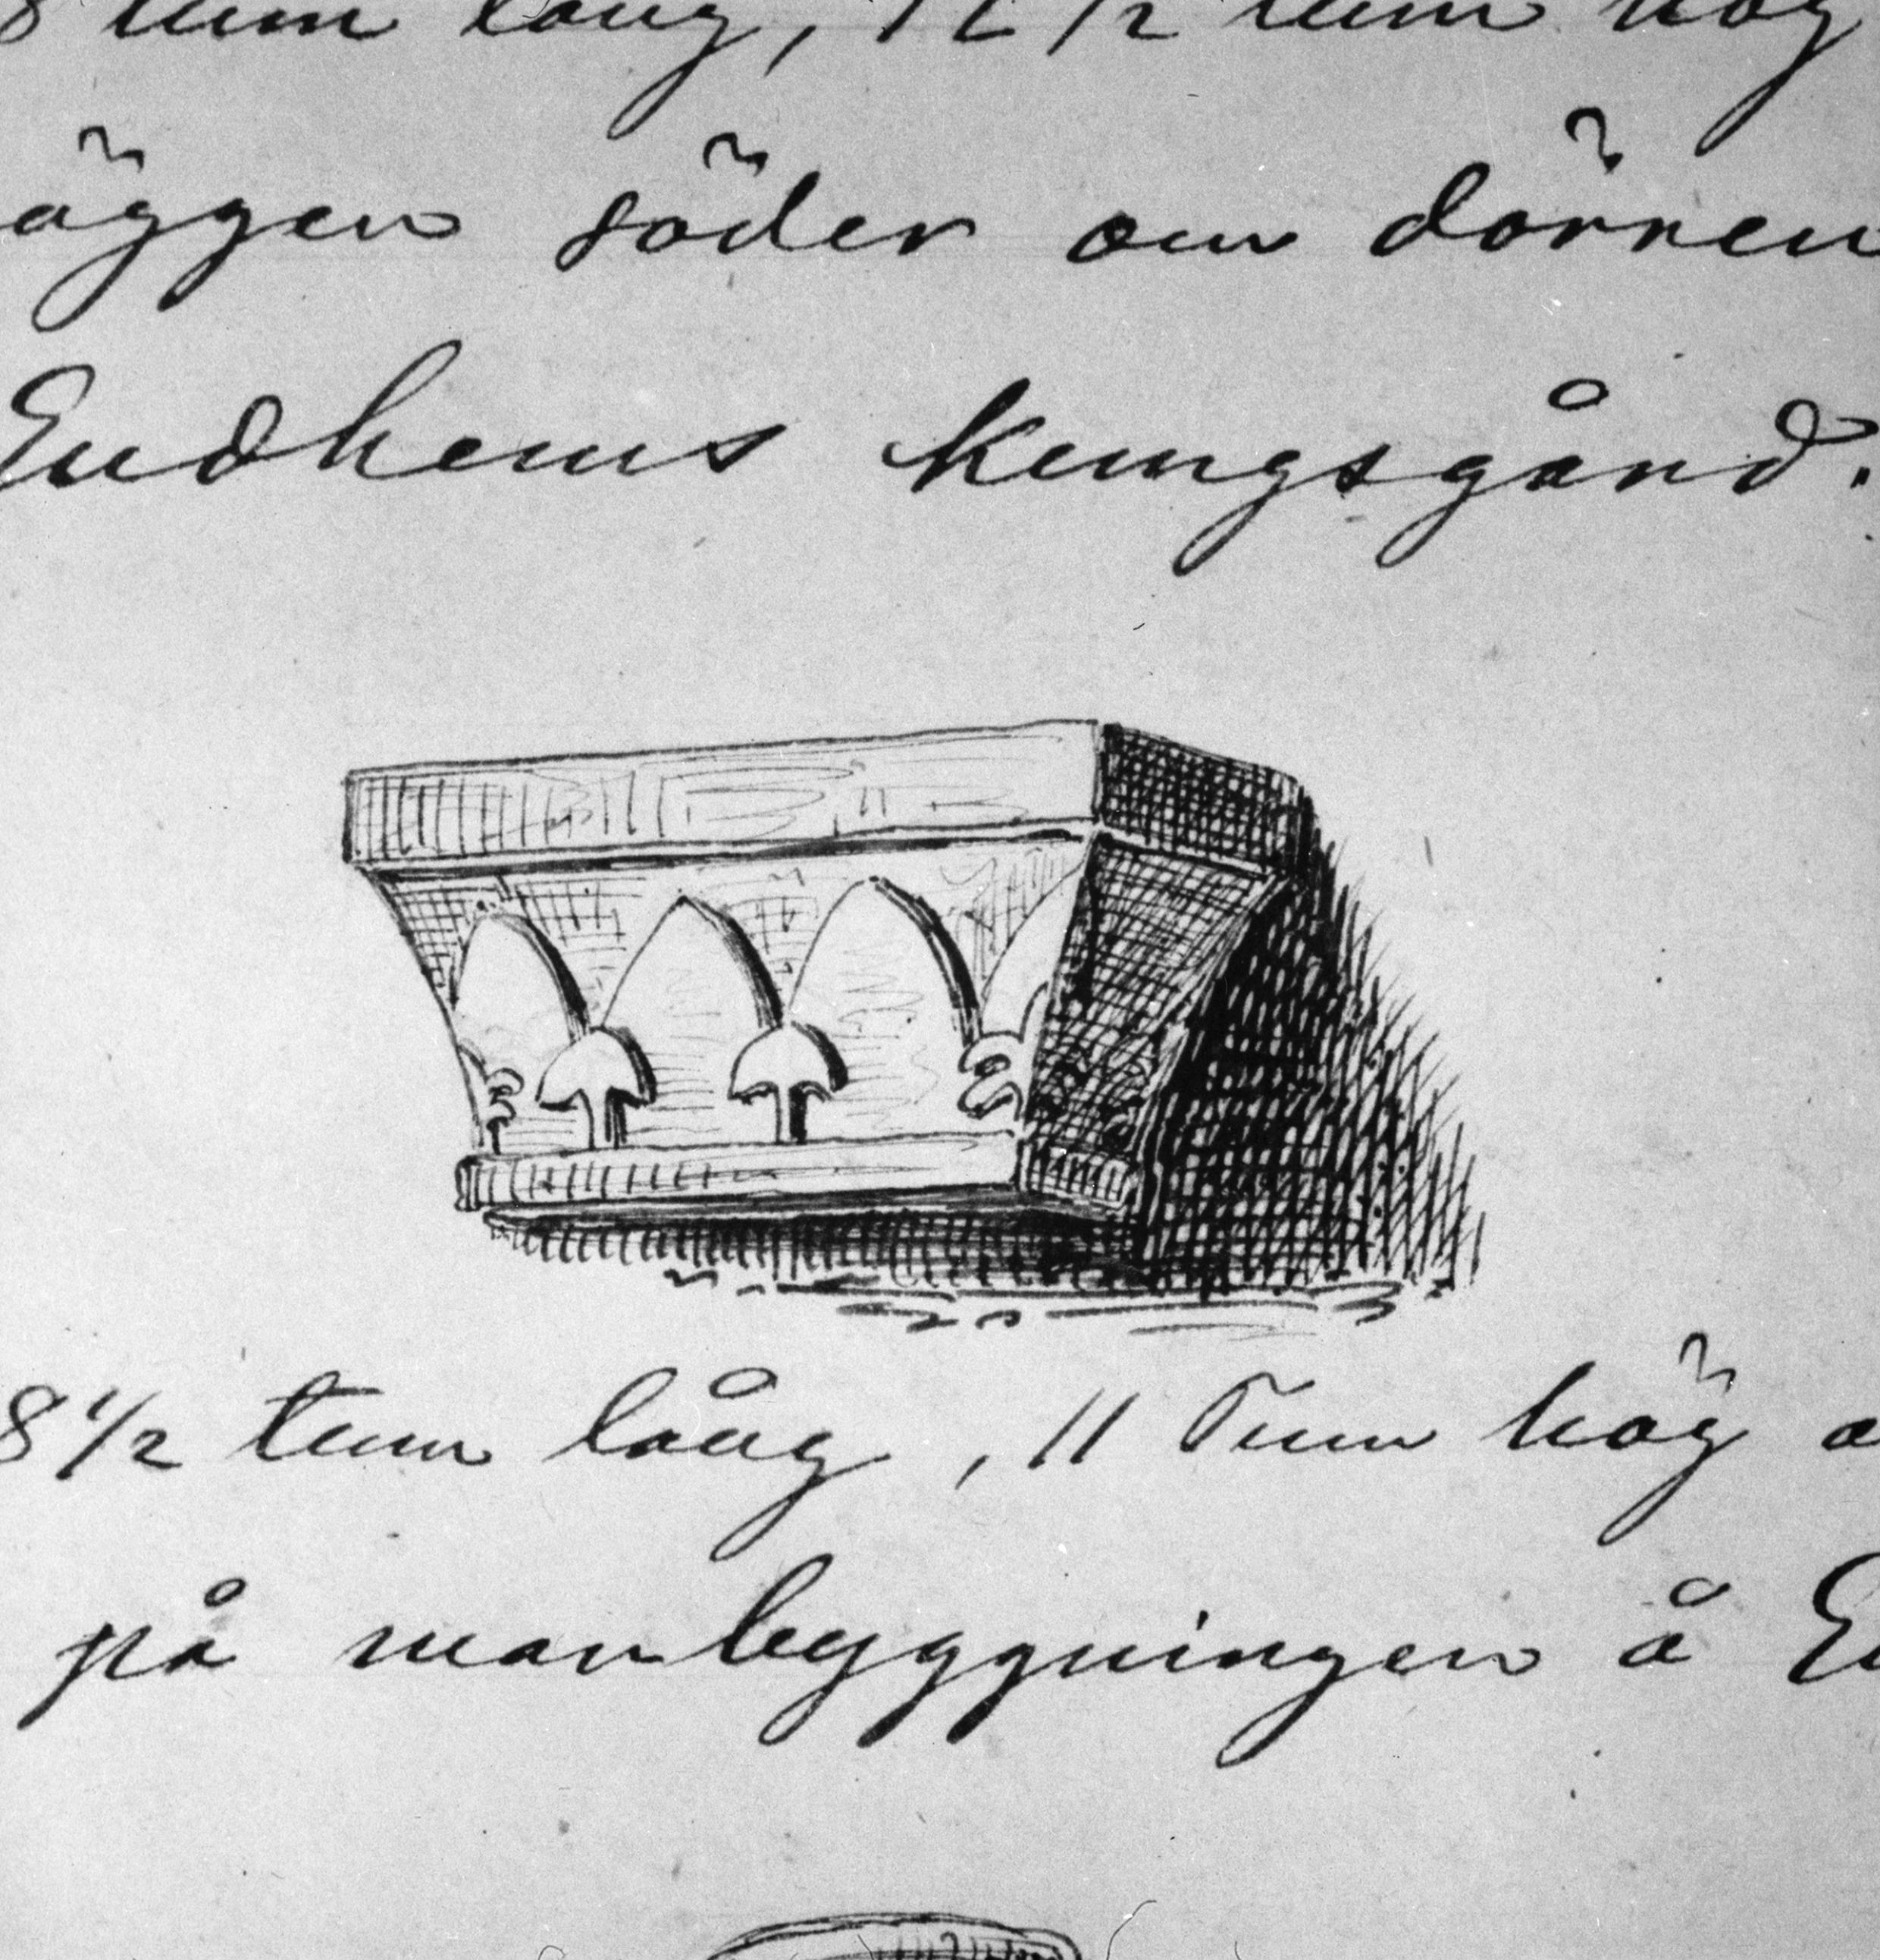 8 tum lång, 12 1/2 tum hög
äggen söder om dörren
Eudhems Kungsgård.
8 1/2 tum lång, 11 Tum hög
på manbyggningen å